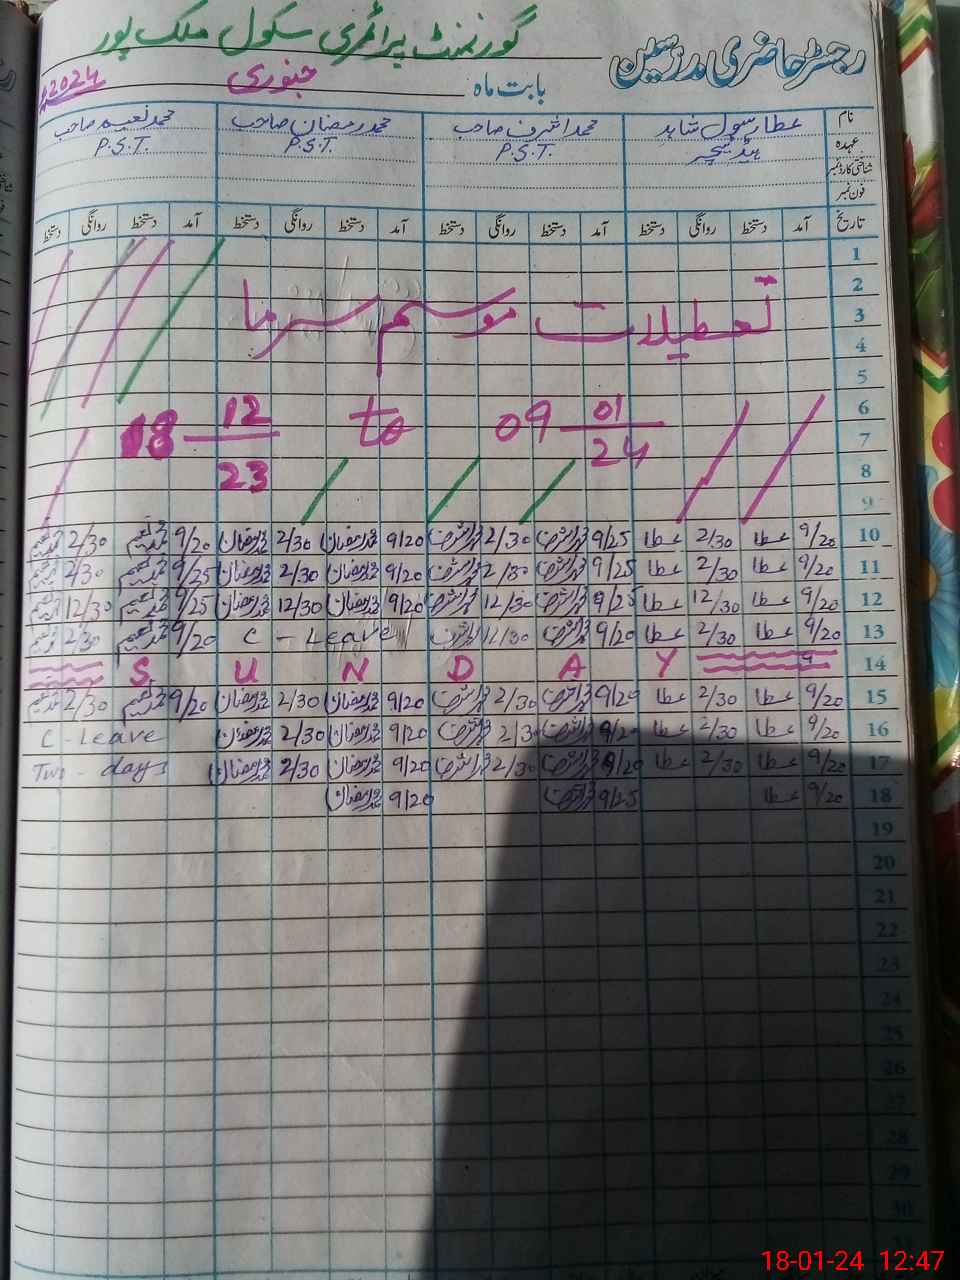 گورنمنٹ پرائمری سکول ملک پور
رجسٹر حاضری مدرسین
بابت ماہ جنوری 2024
نام عطا رسول شاہد محمد اشرف صاحب محمد رمضان صاحب محمد نعیم صاحب
عہدہ ہیڈ ٹیچر P.S.T. P.S.T. P.S.T.
شناختی کارڈ نمبر
فون نمبر
تاریخ آمد دستخط روانگی دستخط آمد دستخط روانگی دستخط آمد دستخط روانگی دستخط آمد دستخط روانگی دستخط
1
2
3
تعطیلات موسم سرما
4
5
6
18 12/23 to 09 01/24
7
8
9
10 9/20 عطا 2/30 عطا 9/25 محمد اشرف 2/30 محمد اشرف 9/20 محمد رمضان 2/30 محمد رمضان 9/20 محمد نعیم 2/30 محمد نعیم
11 9/20 عطا 2/30 عطا 9/25 محمد اشرف 2/30 محمد اشرف 9/20 محمد رمضان 2/30 محمد رمضان 9/25 محمد نعیم 2/30 محمد نعیم
12 9/20 عطا 12/30 عطا 9/25 محمد اشرف 12/30 محمد اشرف 9/20 محمد رمضان 12/30 محمد رمضان 9/25 محمد نعیم 12/30 محمد نعیم
13 9/20 عطا 2/30 عطا 9/20 محمد اشرف محمد اشرف C - Leave 9/20 محمد نعیم 2/30 محمد نعیم
14 S U N D A Y
15 9/20 عطا 2/30 عطا 9/20 محمد اشرف 2/30 محمد اشرف 9/20 محمد رمضان 2/30 محمد رمضان 9/20 محمد نعیم 2/30 محمد نعیم
16 9/20 عطا 2/30 عطا 9/20 محمد اشرف 2/30 محمد اشرف 9/20 محمد رمضان 2/30 محمد رمضان C - Leave
17 9/20 عطا 2/30 عطا 9/20 محمد اشرف 2/30 محمد اشرف 9/20 محمد رمضان 2/30 محمد رمضان Two - days
18 9/20 عطا 9/25 محمد اشرف 9/20 محمد رمضان
19
20
21
22
23
24
25
26
27
28
29
30
18-01-24 12:47